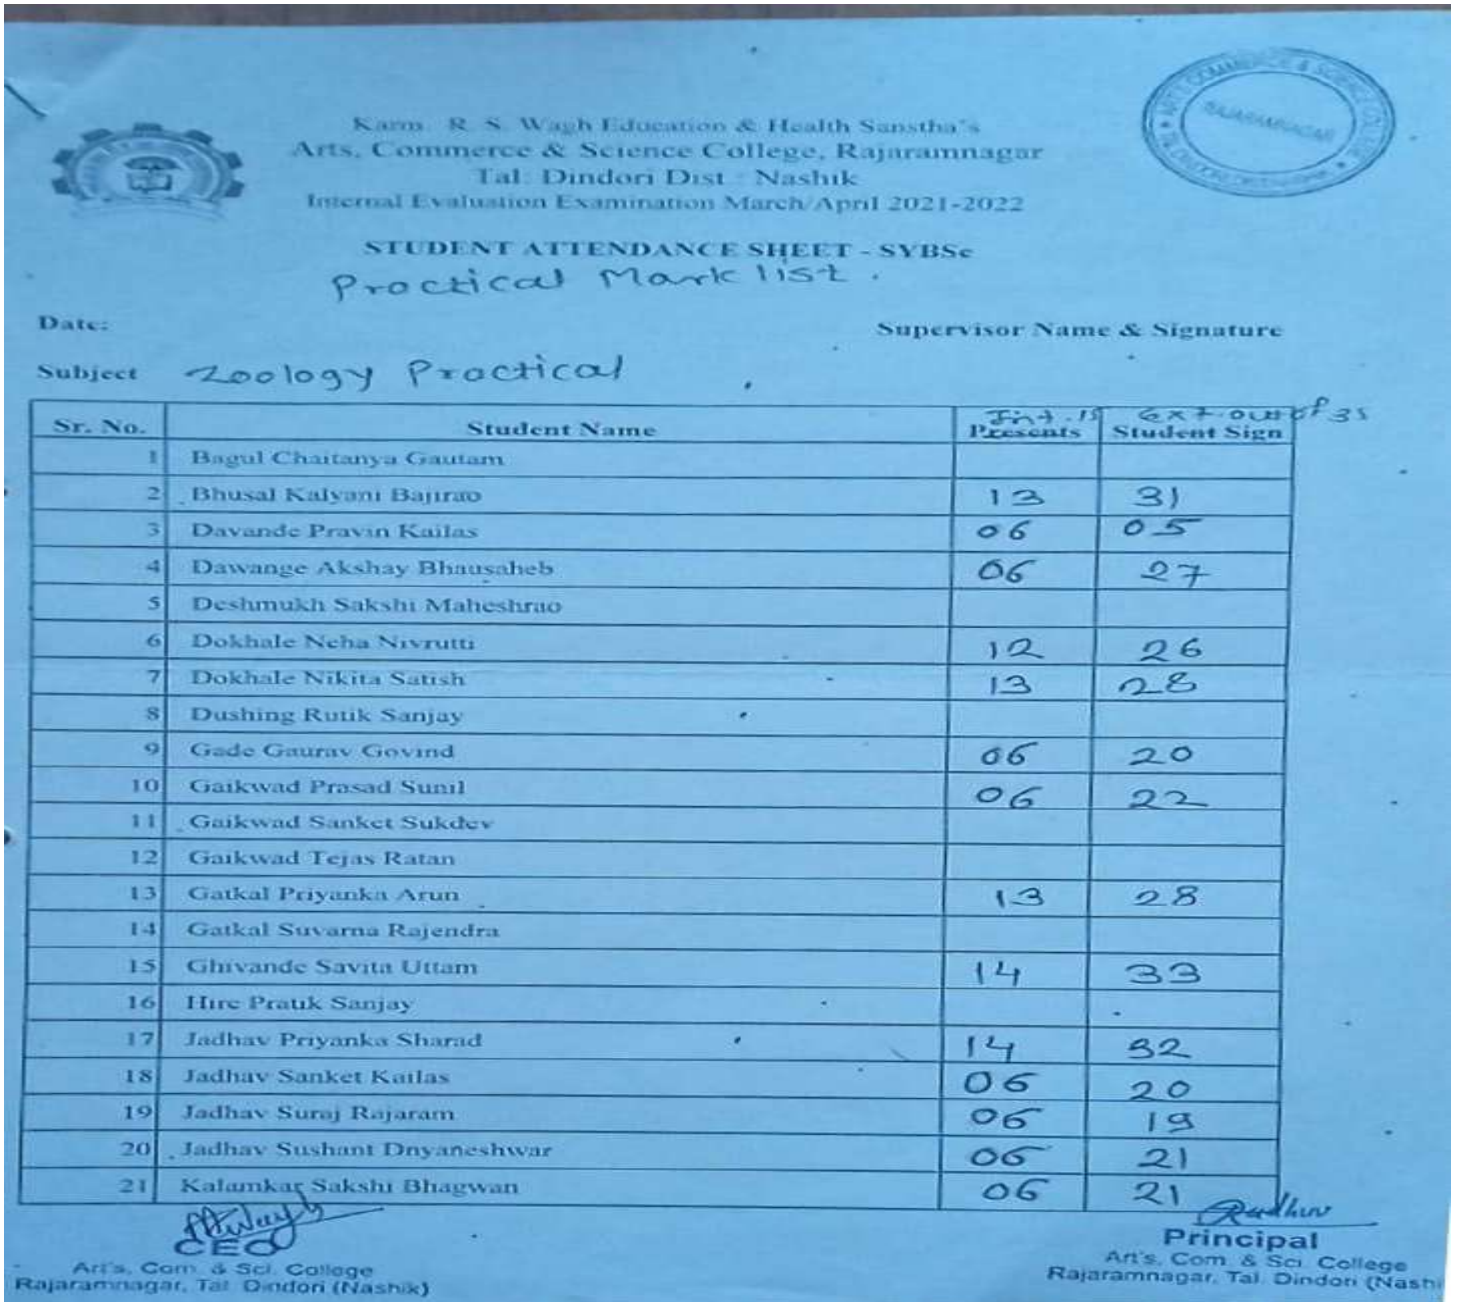 ARTS COMMERCE & SCIENCE COLLEGE
RAJARAMNAGAR
Karm. R. S. Wagh Education & Health Sanstha's
Arts, Commerce & Science College, Rajaramnagar
Tal: Dindori Dist : Nashik
Internal Evaluation Examination March/April 2021-2022
STUDENT ATTENDANCE SHEET - SYBSc
Practical Mark list .
Date:
Supervisor Name & Signature
Subject Zoology Practical
Int. 15 Ext. out of 35
Sr. No. Student Name Presents Student Sign
1 Bagul Chaitanya Gautam
2 Bhusal Kalyani Bajirao 13 31
3 Davande Pravin Kailas 06 05
4 Dawange Akshay Bhausaheb 06 27
5 Deshmukh Sakshi Maheshrao
6 Dokhale Neha Nivrutti 12 26
7 Dokhale Nikita Satish 13 28
8 Dushing Rutik Sanjay
9 Gade Gaurav Govind 06 20
10 Gaikwad Prasad Sunil 06 22
11 Gaikwad Sanket Sukdev
12 Gaikwad Tejas Ratan
13 Gatkal Priyanka Arun 13 28
14 Gatkal Suvarna Rajendra
15 Ghivande Savita Uttam 14 33
16 Hire Pratik Sanjay
17 Jadhav Priyanka Sharad 14 32
18 Jadhav Sanket Kailas 06 20
19 Jadhav Suraj Rajaram 06 19
20 Jadhav Sushant Dnyaneshwar 06 21
21 Kalamkar Sakshi Bhagwan 06 21
CEO
Art's, Com. & Sci. College
Rajaramnagar, Tal. Dindori (Nashik)
Principal
Art's, Com. & Sci. College
Rajaramnagar, Tal. Dindori (Nashi